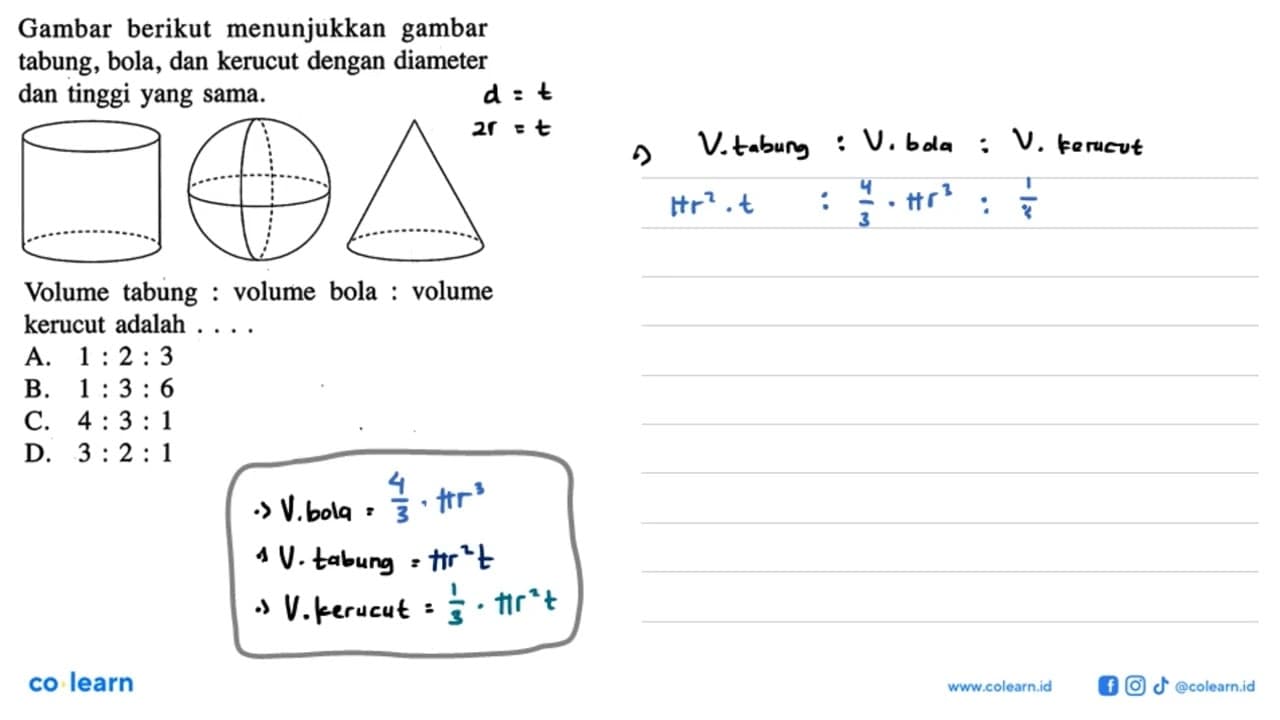 Gambar berikut menunjukkan gambar
tabung, bola, dan kerucut dengan diameter
dan tinggi yang sama.
d = t
2r = t
Volume tabung : volume bola : volume
kerucut adalah . . . .
A. 1 : 2 : 3
B. 1 : 3 : 6
C. 4 : 3 : 1
D. 3 : 2 : 1
V.bola = 4/3 . πr³
V. tabung = πr²t
V.kerucut = 1/3 . πr²t
V.tabung : V.bola : V. kerucut
πr² . t : 4/3 . πr³ : 1/3
co learn
www.colearn.id
@colearn.id